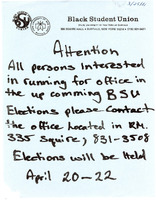 Black Student Union
Attention
All persons interested
in running for office in
the up comming BSU
Elections please contact
the office located in RM.
335 Squire, 831-3508
Elections will be held
April 20-22